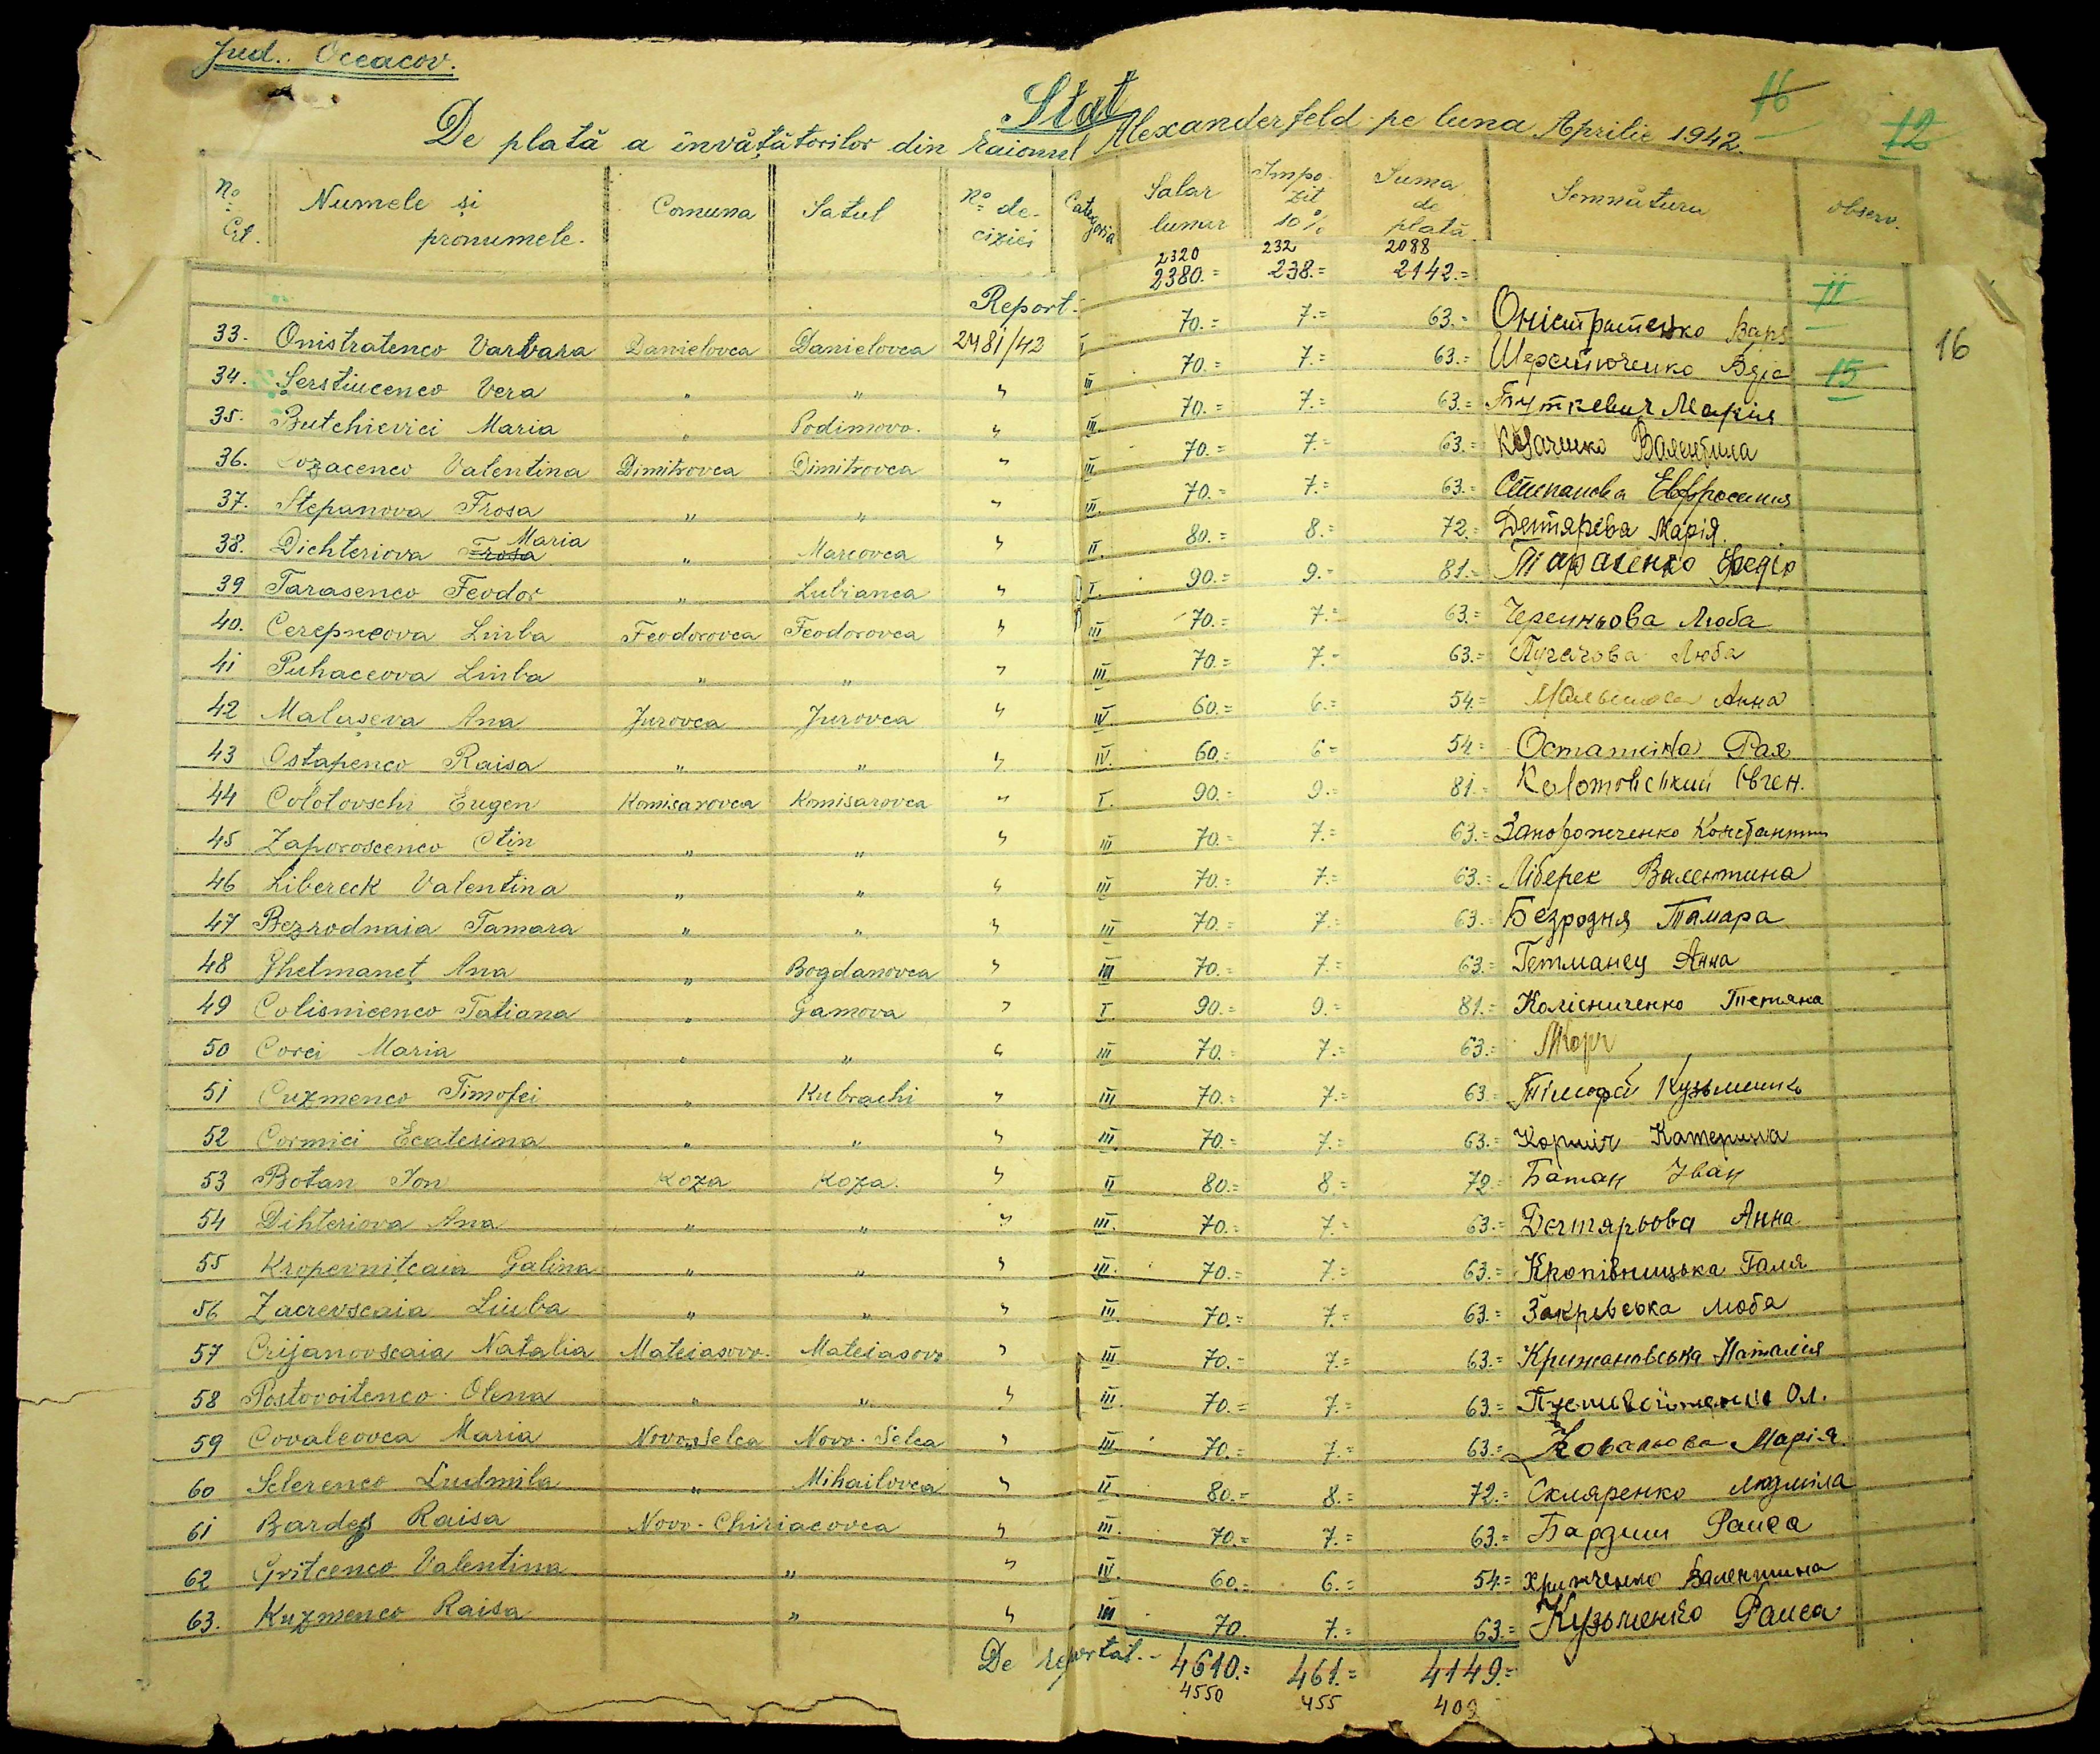 Jud. Oceacov.
Stat
16
12
De plată a învățătorilor din raionul Alexanderfeld pe luna Aprilie 1942.
No Crt. Numele și pronumele. Comuna Satul No de-ciziei Categoria Salar lunar Impo-zit 10% Suma de plată Semnătura Observ.
2320 232 2088
Report.- 2380.= 238.= 2142.= 11
16
33. Onistratenco Varvara Danielovca Danielovca 2481/42 I 70.= 7.= 63.= Оністратенко Варв
34. Serstiucenco Vera " " " III 70.= 7.= 63.= Шерстюченко Віра 15
35. Butchievici Maria " Podimovo. " III. 70.= 7.= 63.= Буткевич Марія
36. Cozacenco Valentina Dimitrovca Dimitrovca " III 70.= 7.= 63.= Козаченко Валентина
37. Stepanova Frosa " " " III. 70.= 7.= 63.= Степанова Евфросиния
38. Dichteriova Frosa Maria " Marcovca " II. 80.= 8.= 72.= Дегтярева Марія.
39 Tarasenco Feodor " Lubianca " I 90.= 9.= 81.= Тарасенко Федір
40. Cerepneova Liuba Feodorovca Feodorovca " III 70.= 7.= 63.= Черепньова Люба
41 Puhaceova Liuba " " " III 70.= 7.= 63.= Пугачова Люба
42 Malușeva Ana Jurovca Jurovca " IV 60.= 6.= 54.= Анна
43 Ostapenco Raisa " " " IV. 60.= 6= 54= Рая
44 Colotovschi Eugen Komisarovca Komisarovca " I. 90.= 9.= 81.= Колотовський Євген.
45 Zaporoscenco Ctin " " " III 70.= 7.= 63.= Запорожченко Константин
46 Libereck Valentina " " " III 70.= 7.= 63.= Ліберек Валентина
47 Bezrodnaia Tamara " " " III 70.= 7.= 63.= Безродня Тамара
48 Ghetmaneț Ana " Bogdanovca " III 70.= 7.= 63.= Гетманец Анна
49 Colisnicenco Tatiana " Gamova " I 90.= 9.= 81.= Колісниченко Тетяна
50 Corci Maria " " " III 70.= 7.= 63.=
51 Cuzmenco Timofei " Kubrachi " III 70.= 7.= 63. Тімофей Кузьменко
52 Cormici Ecaterina " " " III. 70.= 7.= 63.= Корміч Катерина
53 Botan Ion Koza Koza. " II 80.= 8.= 72= Ботан Іван
54 Dihteriova Ana " " " III. 70.= 7.= 63.= Дегтярьова Анна
55 Kropevnițcaia Galina " " " III. 70.= 7.= 63.= Кропівницька Галя
56 Zacrevscaia Liuba " " " III. 70.= 7.= 63.= Закревська Люба
57 Crijanovscaia Natalia Mateiasovo. Mateiasovo " III 70.= 7.= 63.= Крижановська Наталія
58 Postovoitenco Olena " " " III. 70.= 7.= 63.= Ол.
59 Covaleovca Maria Novo-Selca Novo-Selca " III. 70.= 7.= 63.= Ковальова Марія.
60 Sclerenco Ludmila " Mihailovca " II. 80.= 8.= 72.= Скляренко Людміла
61 Bardeș Raisa Novo-Chiriacovca " III. 70.= 7.= 63.= Бардиш Раиса
62 Gritcenco Valentina " " IV. 60.= 6.= 54= Хритченко Валентина
63. Kuzmenco Raisa " " III 70. 7.= 63.= Кузьменко Раиса
De reportat.- 4610.= 461.= 4149.=
4550 455 409